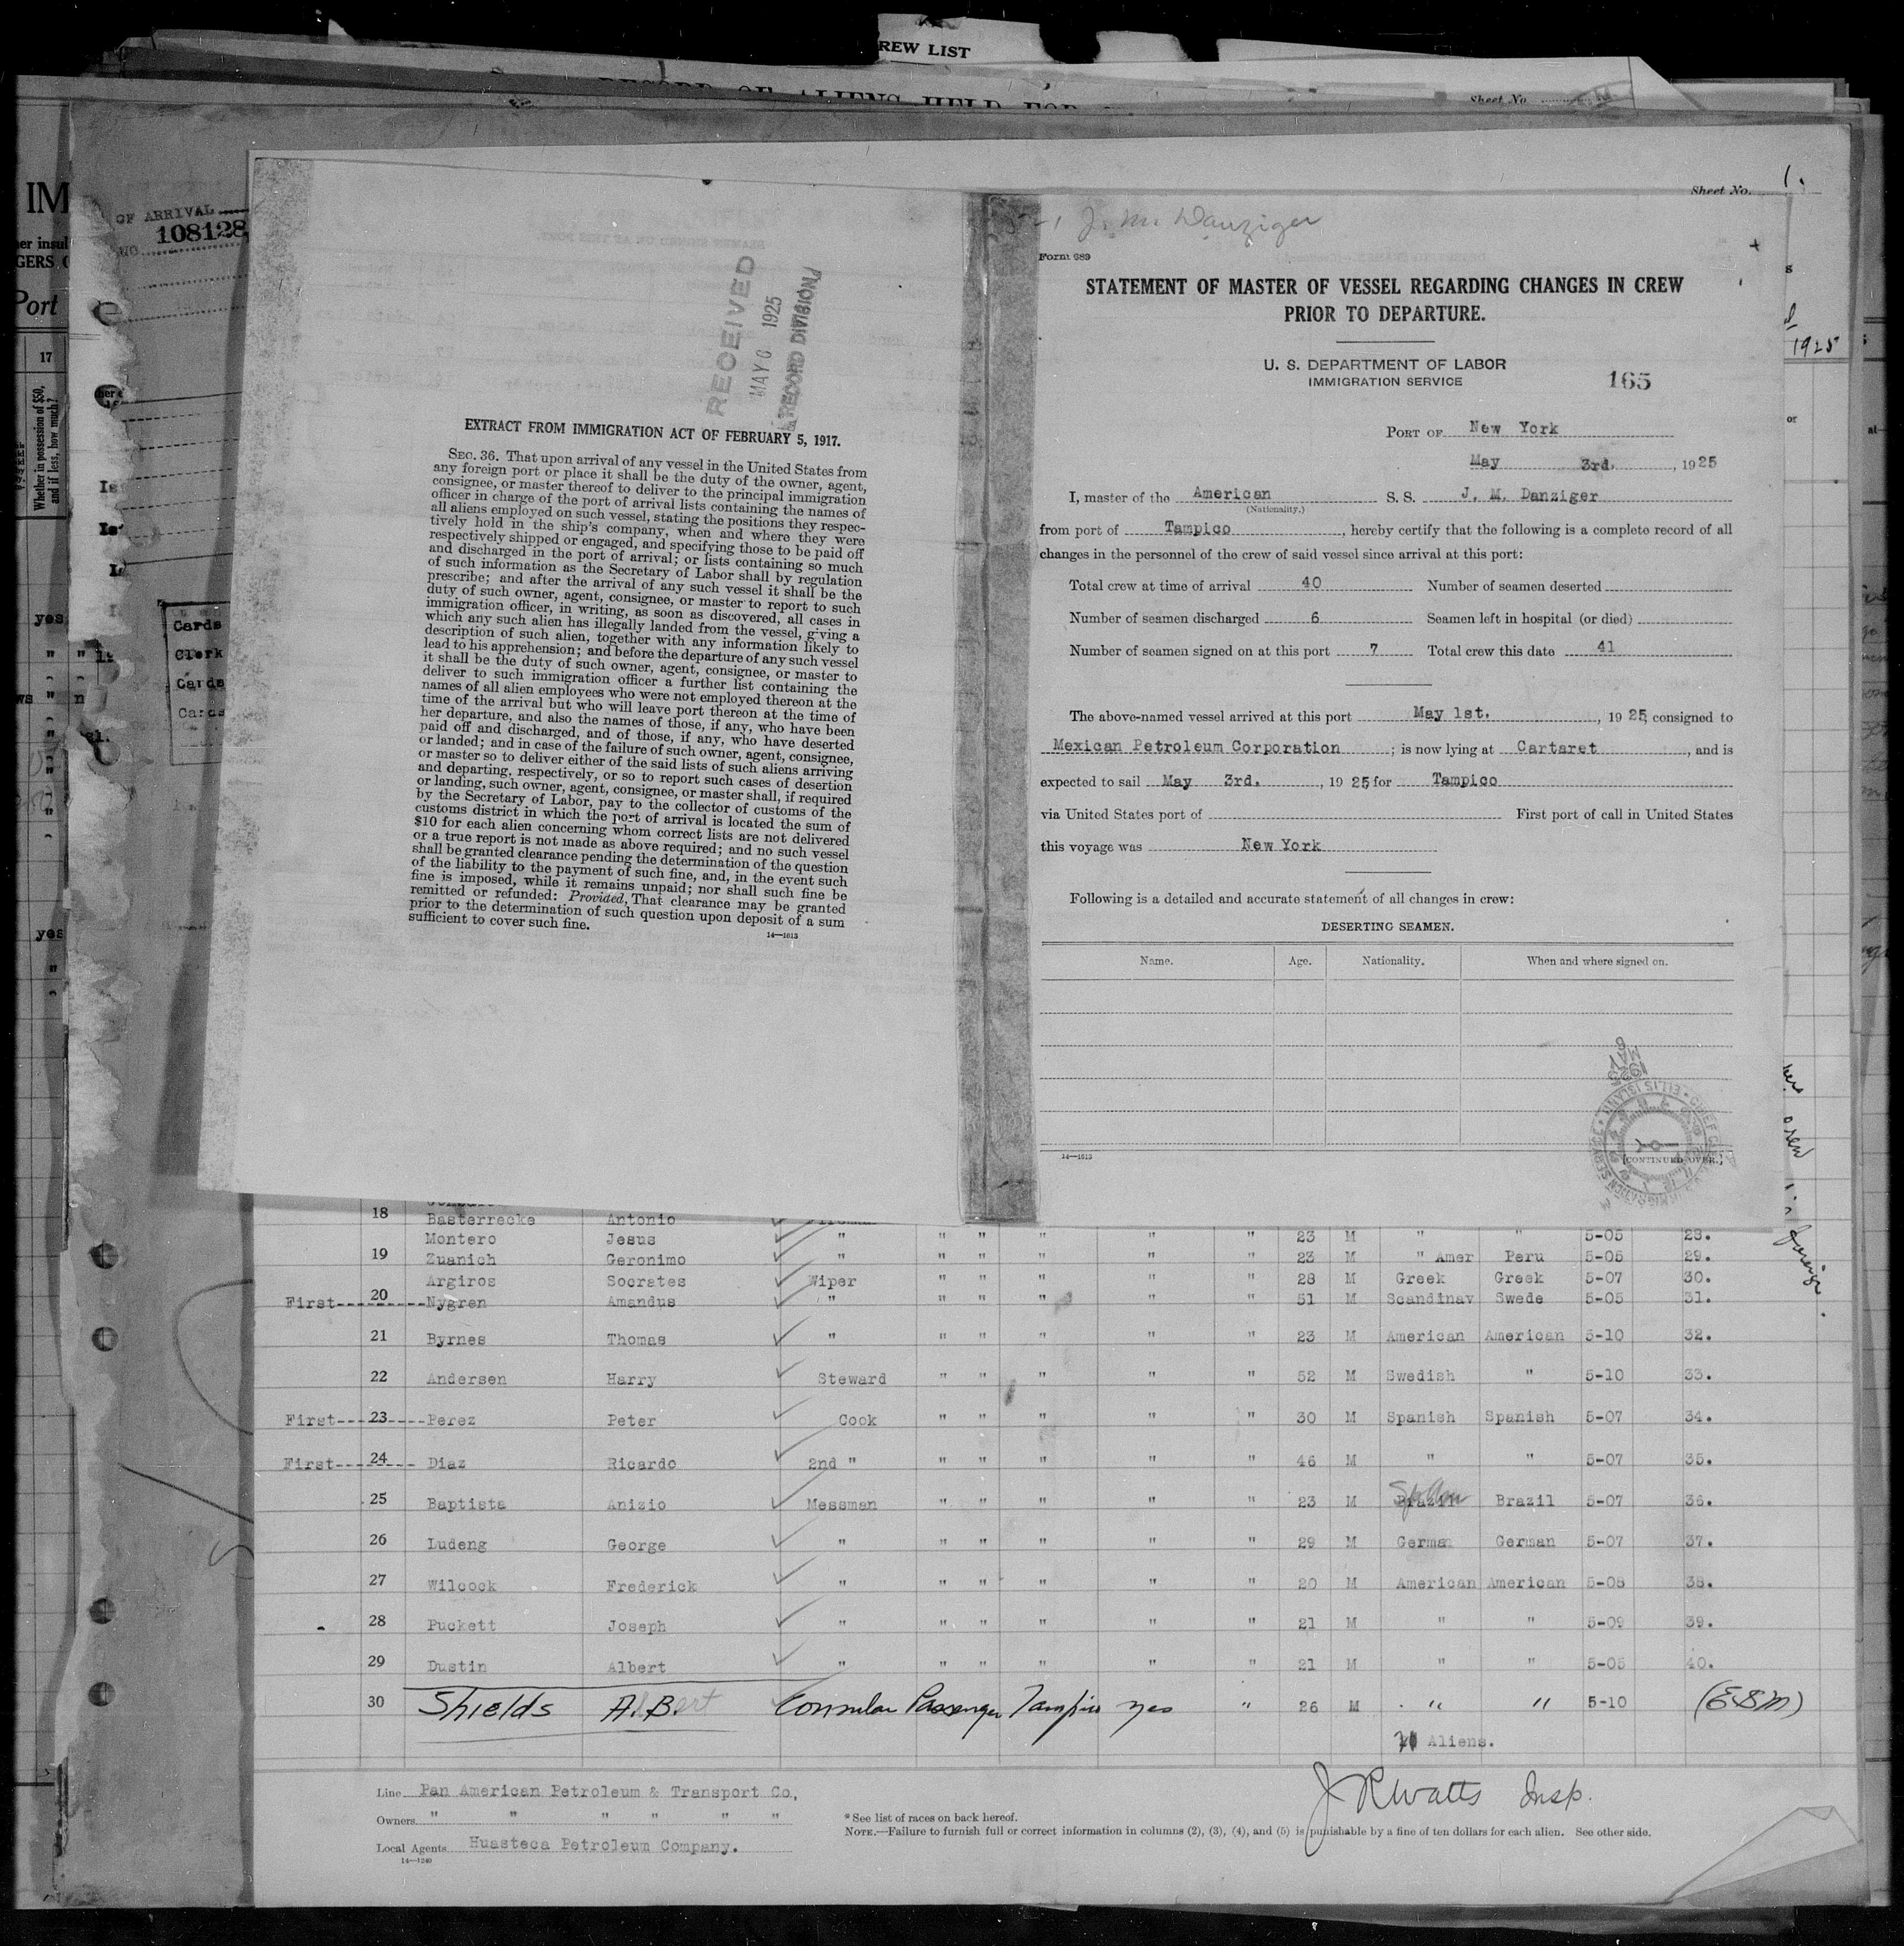 REW LIST
RECORD OF ALIENS HELD FOR
Sheet No.
IM
OF ARRIVAL
NO. 108128
GERS
Port
17
Whether in possession of $50, and if less, how much?
yes
Cards
Clerk
Cards
Cards
yes
RECEIVED
MAY 6 1925
RECORD DIVISION
EXTRACT FROM IMMIGRATION ACT OF FEBRUARY 5, 1917.
SEC. 36. That upon arrival of any vessel in the United States from
any foreign port or place it shall be the duty of the owner, agent,
consignee, or master thereof to deliver to the principal immigration
officer in charge of the port of arrival lists containing the names of
all aliens employed on such vessel, stating the positions they respec-
tively hold in the ship's company, when and where they were
respectively shipped or engaged, and specifying those to be paid off
and discharged in the port of arrival; or lists containing so much
of such information as the Secretary of Labor shall by regulation
prescribe; and after the arrival of any such vessel it shall be the
duty of such owner, agent, consignee, or master to report to such
immigration officer, in writing, as soon as discovered, all cases in
which any such alien has illegally landed from the vessel, giving a
description of such alien, together with any information likely to
lead to his apprehension; and before the departure of any such vessel
it shall be the duty of such owner, agent, consignee, or master to
deliver to such immigration officer a further list containing the
names of all alien employees who were not employed thereon at the
time of the arrival but who will leave port thereon at the time of
her departure, and also the names of those, if any, who have been
paid off and discharged, and of those, if any, who have deserted
or landed; and in case of the failure of such owner, agent, consignee,
or master so to deliver either of the said lists of such aliens arriving
and departing, respectively, or so to report such cases of desertion
or landing, such owner, agent, consignee, or master shall, if required
by the Secretary of Labor, pay to the collector of customs of the
customs district in which the port of arrival is located the sum of
$10 for each alien concerning whom correct lists are not delivered
or a true report is not made as above required; and no such vessel
shall be granted clearance pending the determination of the question
of the liability to the payment of such fine, and, in the event such
fine is imposed, while it remains unpaid; nor shall such fine be
remitted or refunded: Provided, That clearance may be granted
prior to the determination of such question upon deposit of a sum
sufficient to cover such fine.
14—1613
Sheet No. 1.
J. M. Danziger
Form 689
STATEMENT OF MASTER OF VESSEL REGARDING CHANGES IN CREW
PRIOR TO DEPARTURE.
U. S. DEPARTMENT OF LABOR
IMMIGRATION SERVICE
165
1925
PORT OF New York
May 3rd. , 1925
I, master of the American S. S. J. M. Danziger
(Nationality.)
from port of Tampico , hereby certify that the following is a complete record of all
changes in the personnel of the crew of said vessel since arrival at this port:
Total crew at time of arrival 40 Number of seamen deserted
Number of seamen discharged 6 Seamen left in hospital (or died)
Number of seamen signed on at this port 7 Total crew this date 41
The above-named vessel arrived at this port May 1st. , 1925, consigned to
Mexican Petroleum Corporation ; is now lying at Cartaret , and is
expected to sail May 3rd. , 1925, for Tampico
via United States port of First port of call in United States
this voyage was New York
Following is a detailed and accurate statement of all changes in crew:
DESERTING SEAMEN.
Name. Age. Nationality. When and where signed on.
14—1613
[CONTINUED OVER.]
18 Basterrecke Antonio
Montero Jesus " " " " " " 23 M " " 5-05 28.
19 Zuanich Geronimo " " " " " " 23 M " Amer Peru 5-05 29.
Argiros Socrates Wiper " " " " " 28 M Greek Greek 5-07 30.
First 20 Nygren Amandus " " " " " " 51 M Scandinav Swede 5-05 31.
21 Byrnes Thomas " " " " " " 23 M American American 5-10 32.
22 Andersen Harry Steward " " " " " 52 M Swedish " 5-10 33.
First 23 Perez Peter Cook " " " " " 30 M Spanish Spanish 5-07 34.
First 24 Diaz Ricardo 2nd " " " " " " 46 M " " 5-07 35.
25 Baptista Anizio Messman " " " " " 23 M Brazil Brazil 5-07 36.
26 Ludeng George " " " " " " 29 M German German 5-07 37.
27 Wilcock Frederick " " " " " " 20 M American American 5-08 38.
28 Puckett Joseph " " " " " " 21 M " " 5-09 39.
29 Dustin Albert " " " " " " 21 M " " 5-05 40.
30 Shields A. B. Consular Passenger Tampico yes " 26 M " " 5-10 (ESM)
Aliens.
Line Pan American Petroleum & Transport Co,
Owners " " " " " "
Local Agents Huasteca Petroleum Company.
14—1240
* See list of races on back hereof.
NOTE.—Failure to furnish full or correct information in columns (2), (3), (4), and (5) is punishable by a fine of ten dollars for each alien. See other side.
J R Watts Insp.